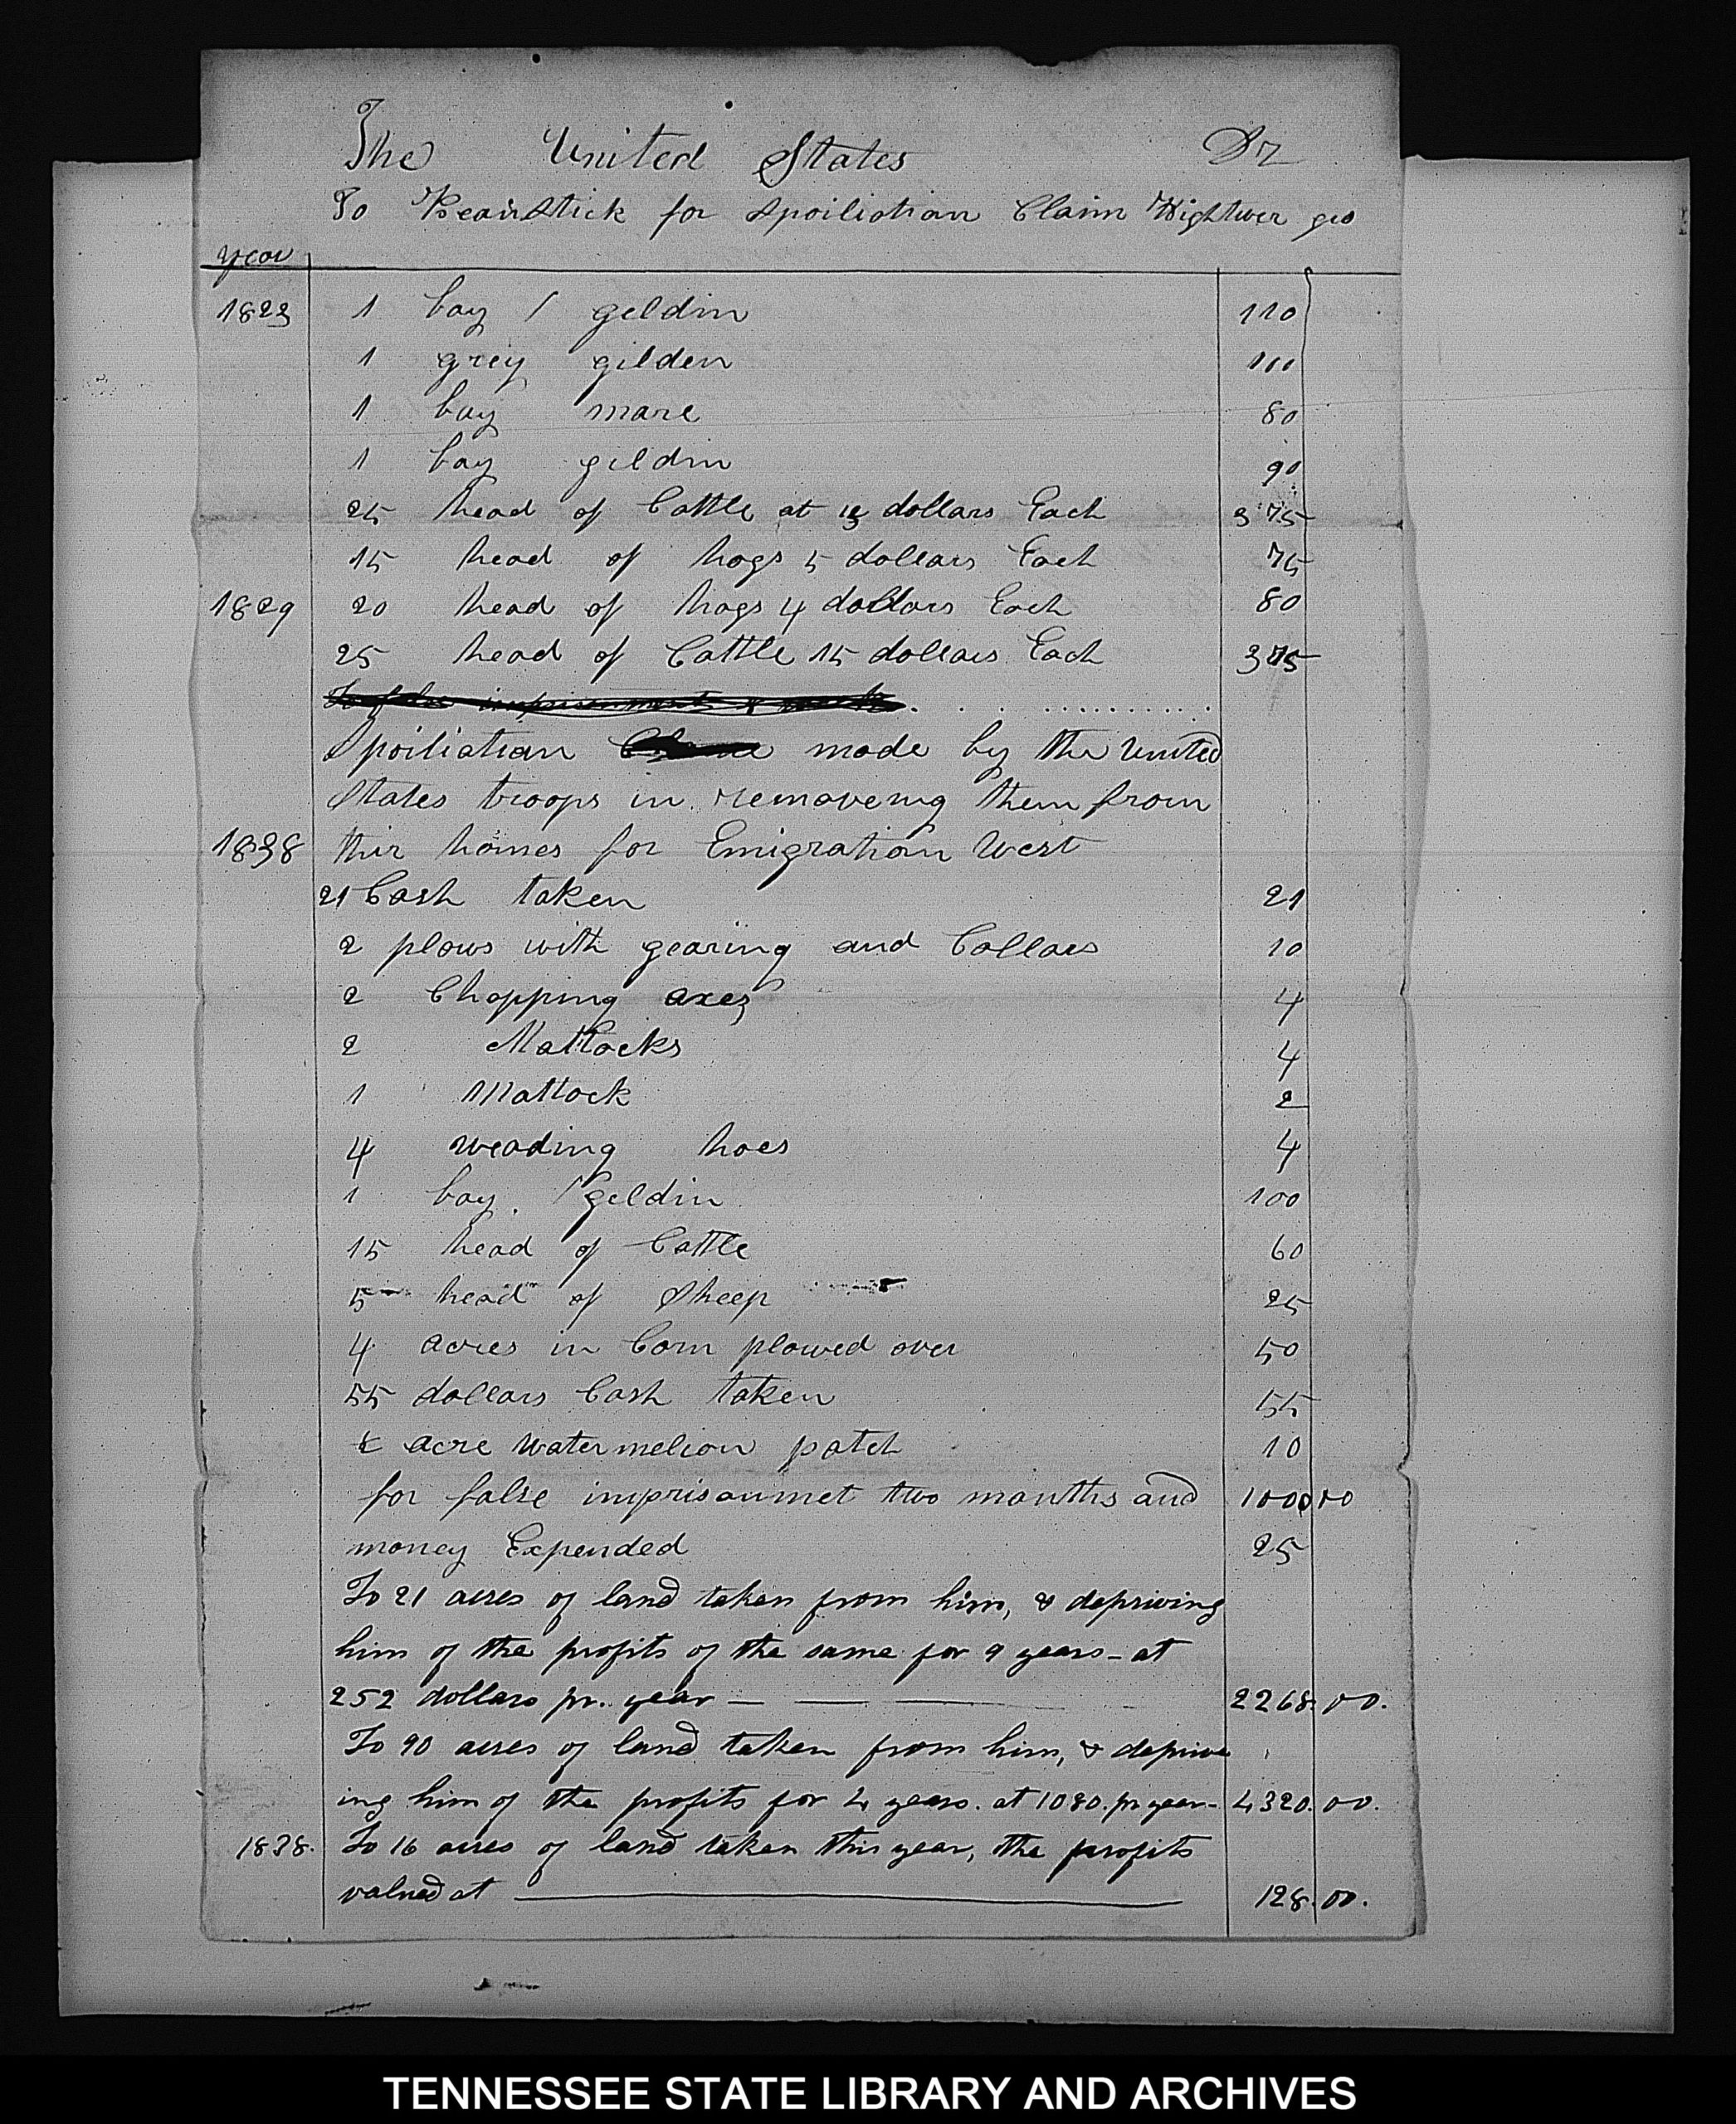 The United States Dr
To Beanstick for Spoiliation Claim Hightwer geo
year
1823 1 bay / geldin 110
1 grey gilden 100
1 bay mare 80
1 bay geldin 90
25 head of Cattle at 15 dollars Each 375
15 head of hogs 5 dollars Each 75
1829 20 head of hogs 4 dollars Each 80
25 head of Cattle 15 dollars Each 375
Spoiliation made by the United
States troops in removeing them from
1838 thir homes for Emigration West
21 Cash taken 21
2 plows with gearing and Collars 10
2 Chopping axes 4
2 Mattocks 4
1 Mattock 2
4 weading hoes 4
1 bay / geldin 100
15 head of Cattle 60
5 head of Sheep 25
4 acres in Corn plowed over 50
55 dollars Cash taken 55
acre Watermelion patch 10
for false imprisonmet two months and 1000 00
money Expended 25
To 21 acres of land taken from him, & depriving
him of the profits of the same for 9 years - at
252 dollars pr. year — — — 2268.00.
To 90 acres of land taken from him, & depriv
ing him of the profits for 4 years. at 1080. pr year - 4320.00.
1838. To 16 acres of land taken this year, the profits
valued at — 128.00.
TENNESSEE STATE LIBRARY AND ARCHIVES